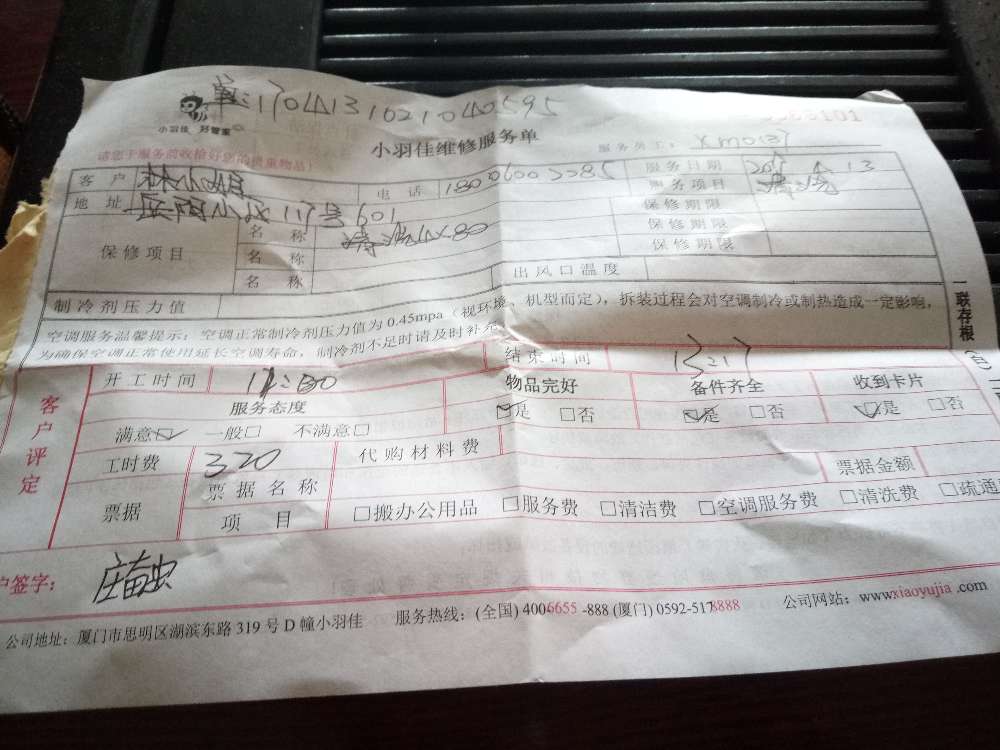 单:1704131021040595
小羽佳 好管家
小羽佳维修服务单
请您于服务前收拾好您的贵重物品
服务员工:
客户 电话 服务日期
地址 117号601 服务项目 清洗
保修项目 名称 清洗4×80 保修期限
名称 保修期限
名称 保修期限
制冷剂压力值 出风口温度
空调服务温馨提示:空调正常制冷剂压力值为0.45mpa(视环境、机型而定),拆装过程会对空调制冷或制热造成一定影响,
为确保空调正常使用延长空调寿命,制冷剂不足时请及时补充
一联存根
客户评定
开工时间 结束时间 13:17
服务态度 物品完好 备件齐全 收到卡片
满意☑ 一般□ 不满意□ ☑是 □否 ☑是 □否 ☑是 □否
工时费 320 代购材料费
票据 票据名称 票据金额
项目 □搬办公用品 □服务费 □清洁费 □空调服务费 □清洗费 □疏通
户签字:
公司地址:厦门市思明区湖滨东路319号D幢小羽佳 服务热线:(全国)4006655-888(厦门)0592-5178888 公司网站:www.xiaoyujia.com